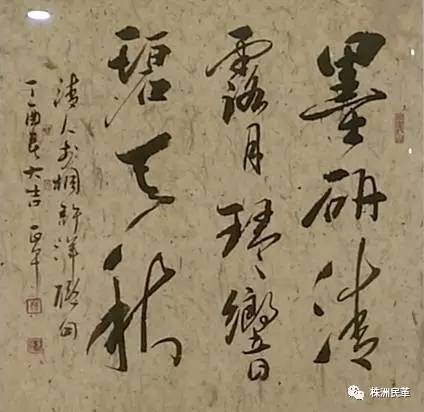 墨研清
露月琴響
碧天秋
清人 聯句
丁酉 大吉
株洲民革